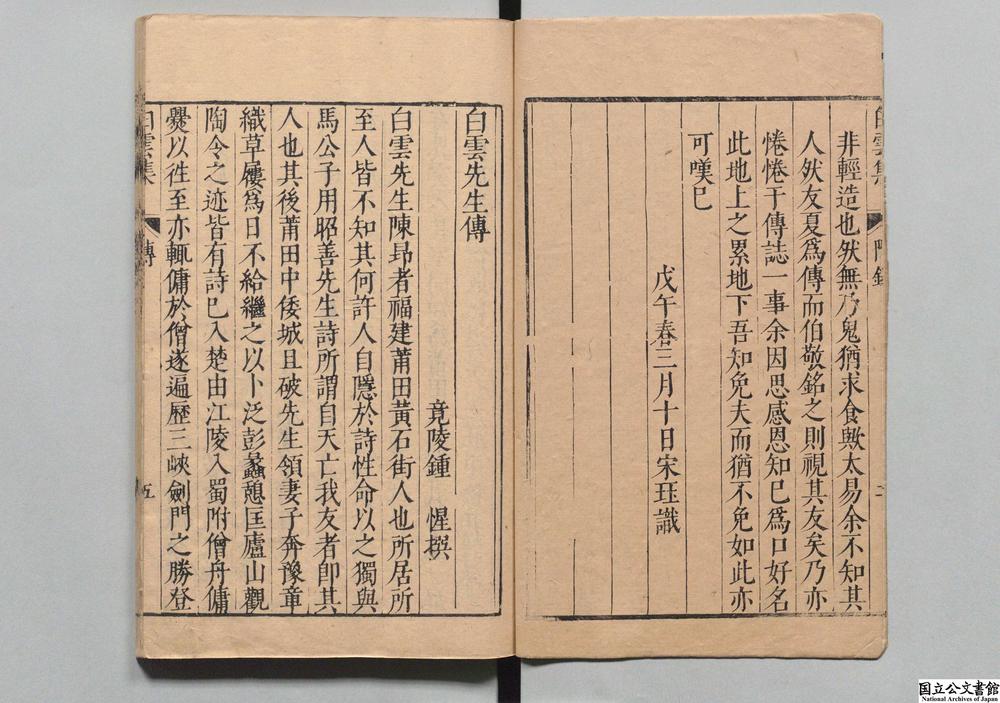 非輕造也然無乃鬼猶求食歟太易余不知其
人然友夏爲傳而伯敬銘之則視其友矣乃亦
惓惓于傳誌一事余因思感恩知已爲口好名
此地上之累地下吾知免夫而猶不免如此亦
可嘆已
戊午春三月十日宋珏識
白雲先生傳
竟陵鍾 惺撰
白雲先生陳昻者福建莆田黃石街人也所居所
至人皆不知其何許人自隱於詩性命以之獨與
馬公子用昭善先生詩所謂自天亡我友者卽其
人也其後莆田中倭城且破先生領妻子奔豫章
織草屨爲日不給繼之以卜泛彭蠡憩匡廬山觀
陶令之迹皆有詩已入楚由江陵入蜀附僧舟傭
爨以徃至亦輒傭於僧遂遍歷三峽劍門之勝登
白雲集
傳
五
国立公文書館
National Archives of Japan